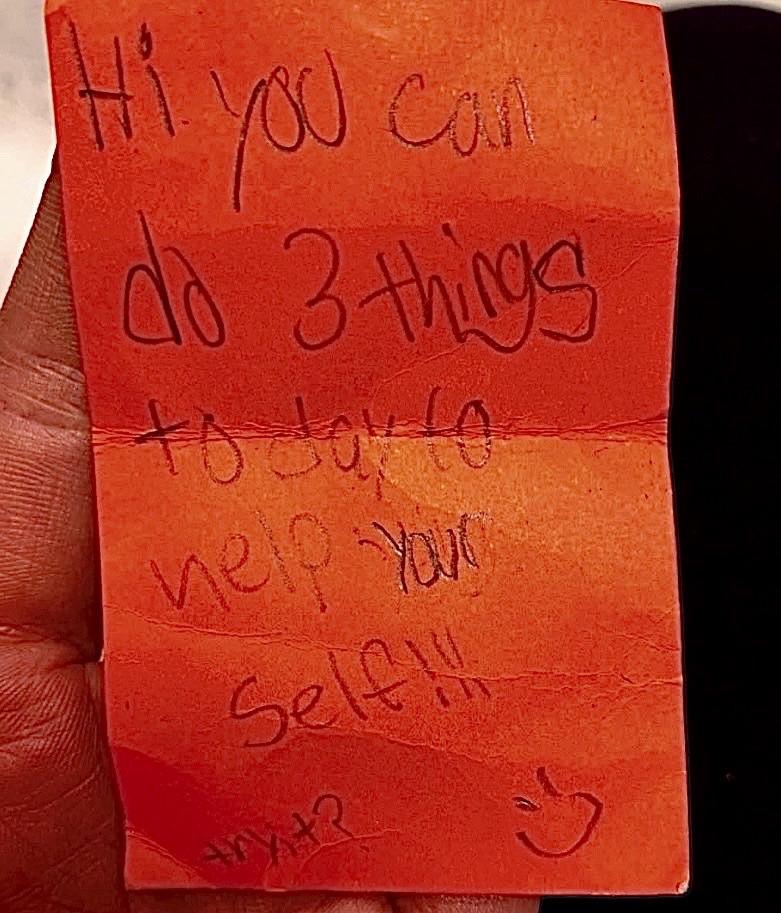 Hi you can
do 3 things
to day to
help your
self!!!
try it?